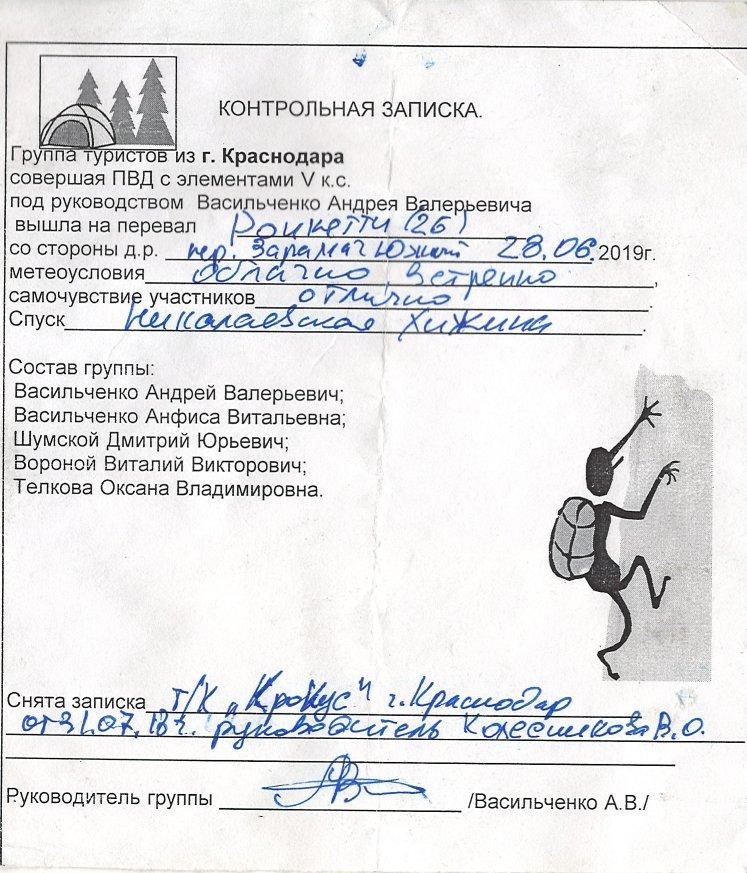 КОНТРОЛЬНАЯ ЗАПИСКА.
Группа туристов из г. Краснодара
совершая ПВД с элементами V к.с.
под руководством Васильченко Андрея Валерьевича
вышла на перевал Ронкетти (2б)
со стороны д.р. пер. Зарамаг Южный 28.06.2019г.
метеоусловия облачно, ветренно,
самочувствие участников отлично.
Спуск Николаевская Хижина.
Состав группы:
Васильченко Андрей Валерьевич;
Васильченко Анфиса Витальевна;
Шумской Дмитрий Юрьевич;
Вороной Виталий Викторович;
Телкова Оксана Владимировна.
Снята записка т/к „Крокус" г. Краснодар
от 31.07.18г. руководитель Колесникова В.О.
Руководитель группы /Васильченко А.В./